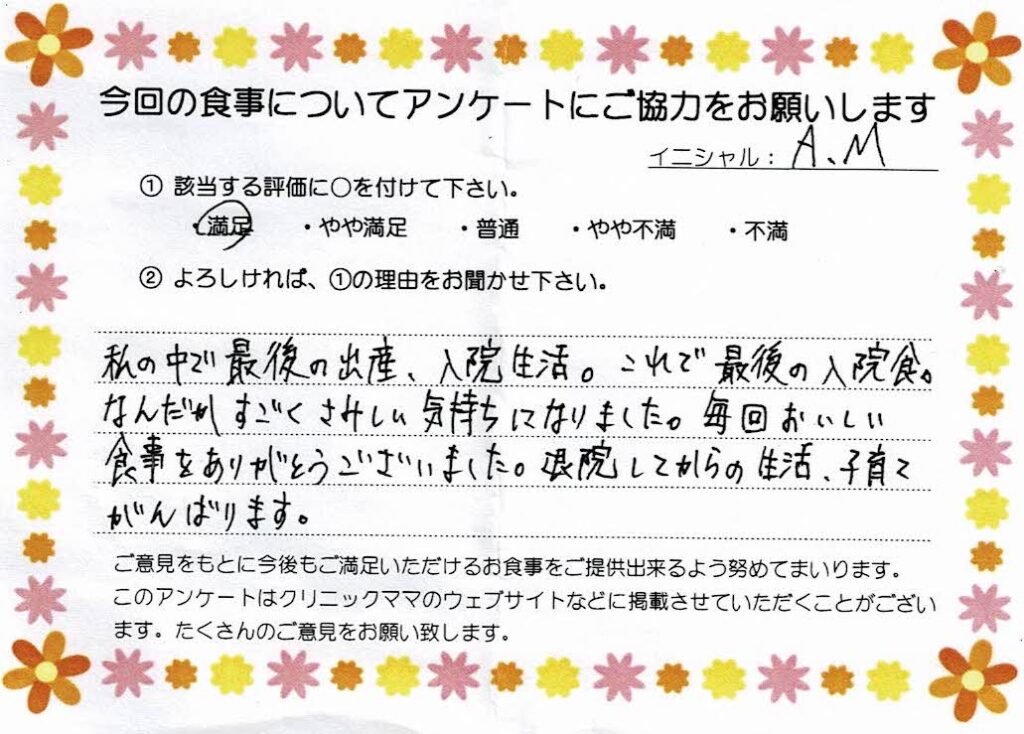 今回の食事についてアンケートにご協力をお願いします
イニシャル： A.M
① 該当する評価に○を付けて下さい。
・満足 ・やや満足 ・普通 ・やや不満 ・不満
② よろしければ、①の理由をお聞かせ下さい。
私の中で最後の出産、入院生活。これで最後の入院食。
なんだかすごくさみしい気持ちになりました。毎回おいしい
食事をありがとうございました。退院してからの生活、子育て
がんばります。
ご意見をもとに今後もご満足いただけるお食事をご提供出来るよう努めてまいります。
このアンケートはクリニックママのウェブサイトなどに掲載させていただくことがござい
ます。たくさんのご意見をお願い致します。